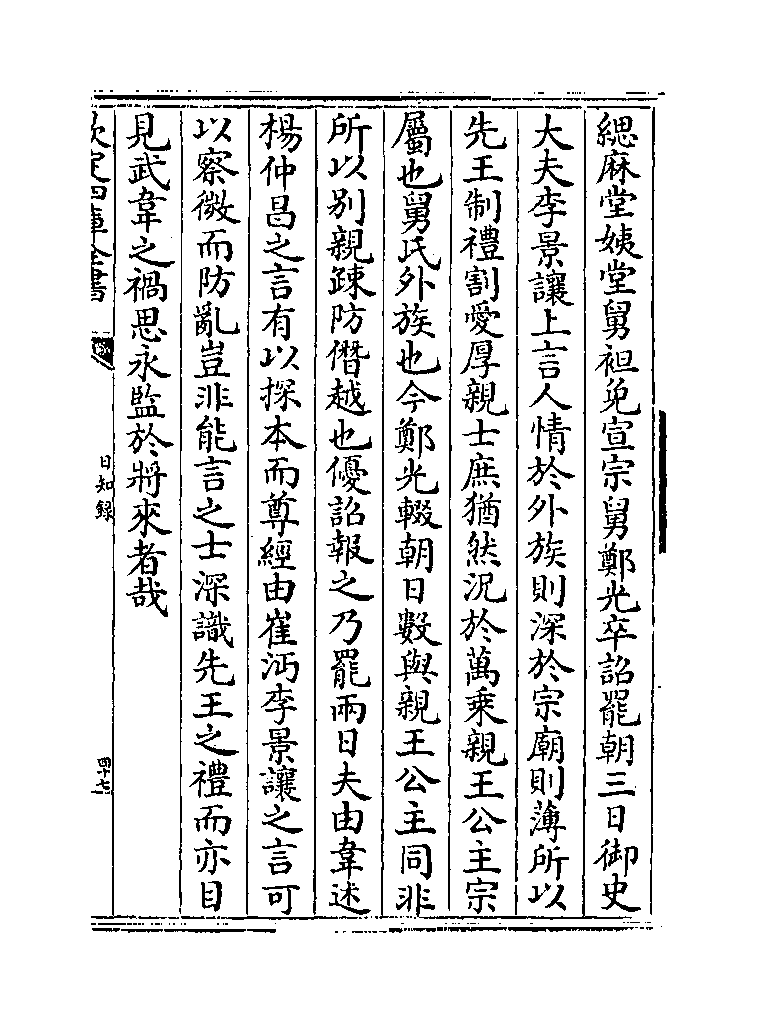 緦麻堂姨堂舅袒免宣宗舅鄭光卒詔罷朝三日御史
大夫李景讓上言人情於外族則深於宗廟則薄所以
先王制禮割愛厚親士庶猶然況於萬乘親王公主宗
屬也舅氏外族也今鄭光輟朝日數與親王公主同非
所以別親踈防僭越也優詔報之乃罷兩日夫由韋述
楊仲昌之言有以探本而尊經由崔沔李景讓之言可
以察微而防亂豈非能言之士深識先王之禮而亦目
見武韋之禍思永監於將來者哉
欽定四庫全書
日知錄
四十七